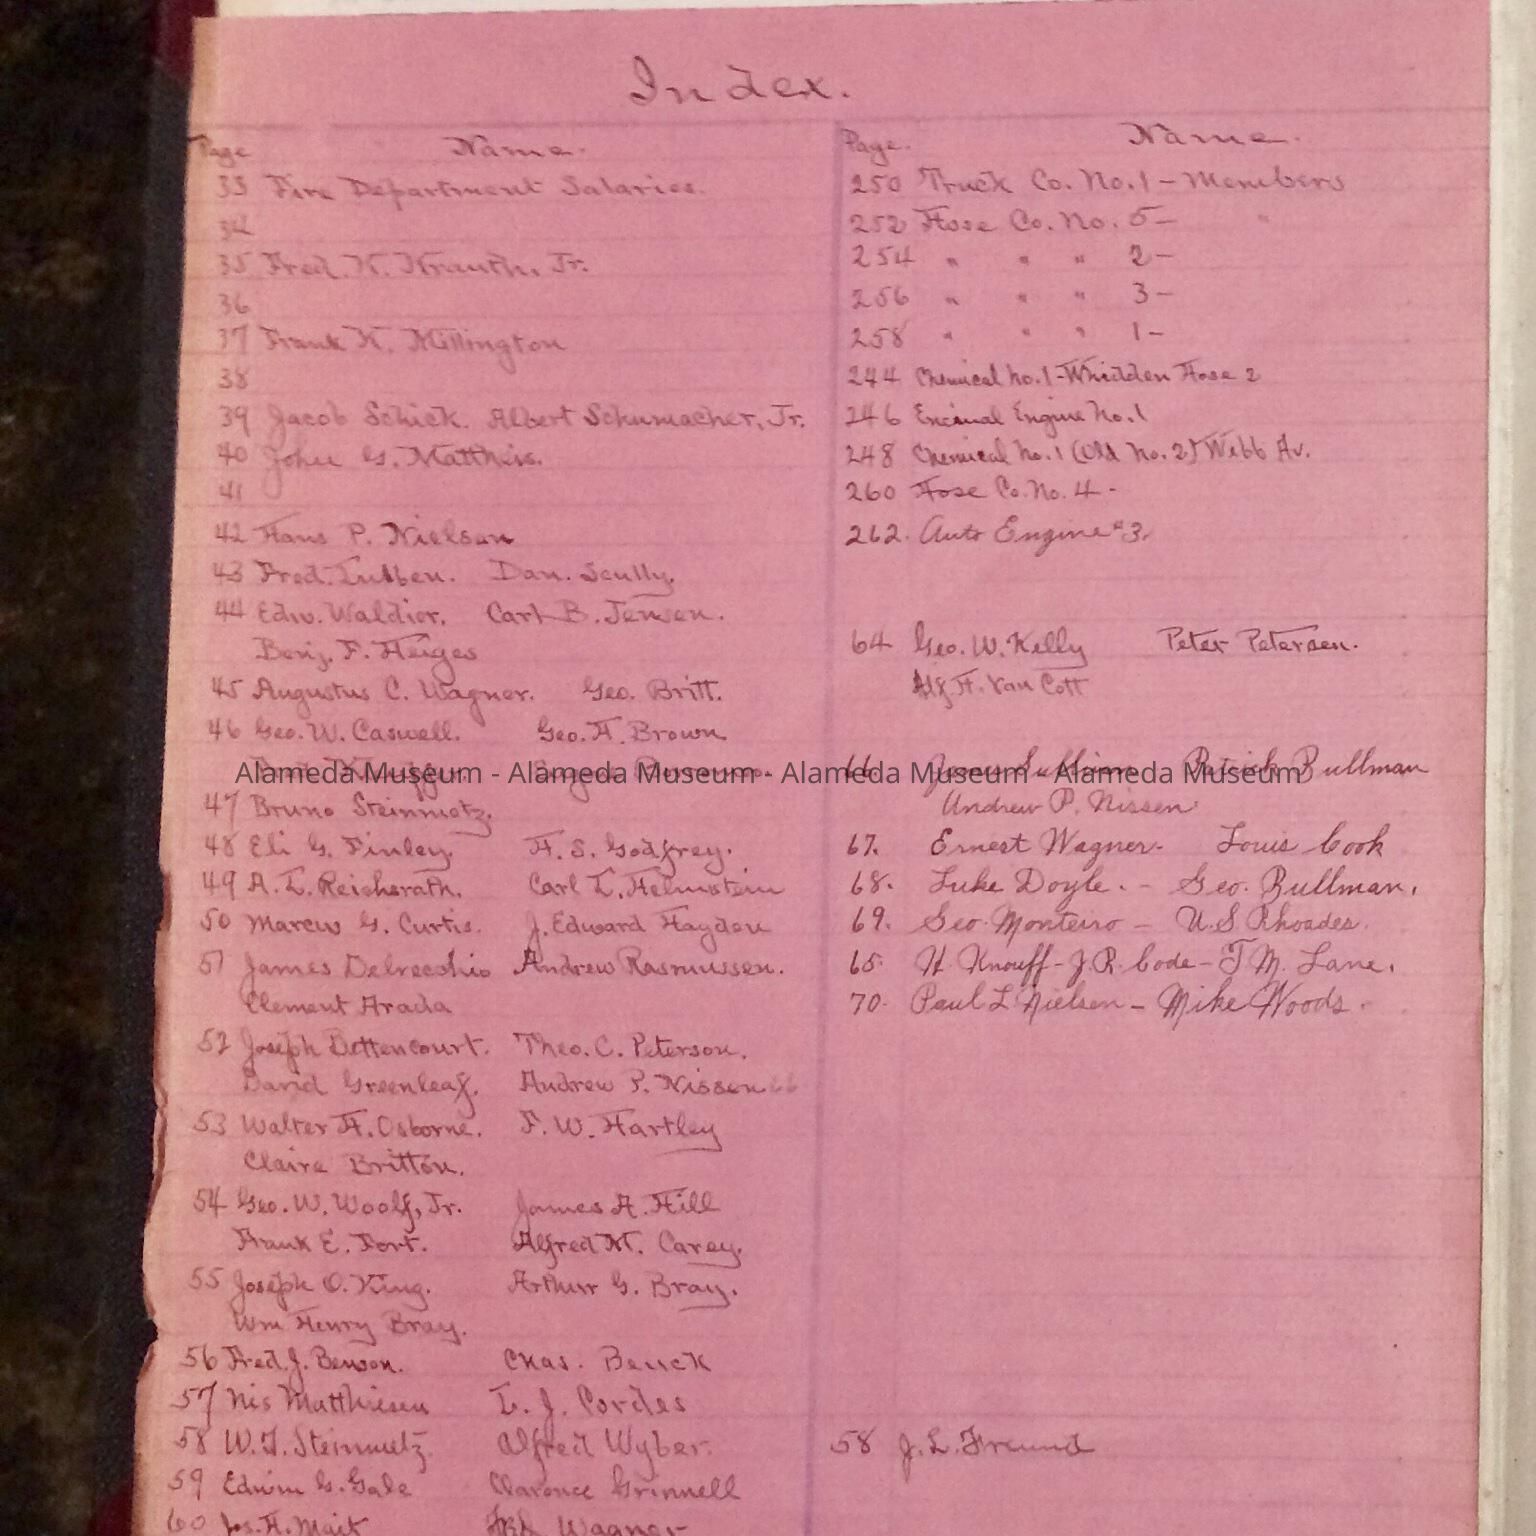 Index.
Page Name.
33 Fire Department Salaries.
34
35 Fred. K. Krauth, Jr.
36
37 Frank K. Millington
38
39 Jacob Schick. Albert Schumacher, Jr.
40 John G. Mattheis.
41
42 Hans P. Nielsen
43 Fred. Lubben. Dan. Scully.
44 Edw. Waldior. Carl B. Jensen.
Benj. F. Heiges
45 Augustus C. Wagner. Geo. Britt.
46 Geo. W. Caswell. Geo. H. Brown
47 Bruno Steinmetz.
48 Eli G. Finley. H. S. Godfrey.
49 A. L. Reichsrath. Carl L. Helmstein
50 Marcus G. Curtis. J. Edward Hayden
51 James Delvecchio Andrew Rasmussen.
Clement Arada
52 Joseph Bettencourt. Theo. C. Peterson.
David Greenleaf. Andrew P. Nissen 66
53 Walter H. Osborne. F. W. Hartley
Claire Britton.
54 Geo. W. Woolf, Jr. James A. Hill
Frank E. Fort. Alfred M. Carey.
55 Joseph O. King. Arthur G. Bray.
Wm Henry Bray.
56 Fred. J. Benson. Chas. Beuck
57 Nis Matthiesen L. J. Cordes
58 W. J. Steinmetz. Alfred Wyber.
59 Edwin G. Gale Clarence Grinnell
60 Jos. H. Mait Wagner
Page. Name.
250 Truck Co. No. 1 — Members
252 Hose Co. No. 5 — "
254 " " " 2 —
256 " " " 3 —
258 " " " 1 —
244 Chemical No. 1 - Whidden Hose 2
246 Encinal Engine No. 1
248 Chemical No. 1 (Old No. 2) Webb Av.
260 Hose Co. No. 4 -
262. Auto Engine #3.
64 Geo. W. Kelly Peter Petersen.
Alf. H. Van Cott
66. James Sullivan Patrick Bullman
Andrew P. Nissen
67. Ernest Wagner - Louis Cook
68. Luke Doyle. - Geo. Bullman.
69. Geo Monteiro - U.S Rhoades.
65 H Knouff - J.R. Code - T M. Lane.
70. Paul L Nielsen - Mike Woods.
58 J. L. Freund
Alameda Museum - Alameda Museum - Alameda Museum - Alameda Museum